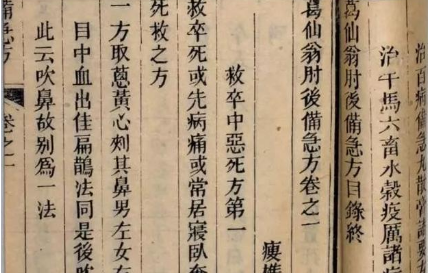 治百病備急丸散膏諸要方
治牛馬六畜水穀疫厲諸病
葛仙翁肘後備急方目錄終
葛仙翁肘後備急方卷之一
救卒中惡死方第一
瘦樵
救卒死或先病痛或常居寢臥奄
死救之方
一方取葱黃心刺其鼻男左女右
目中血出佳扁鵲法同是後吹
此云吹鼻故別爲一法
備急方 卷之一